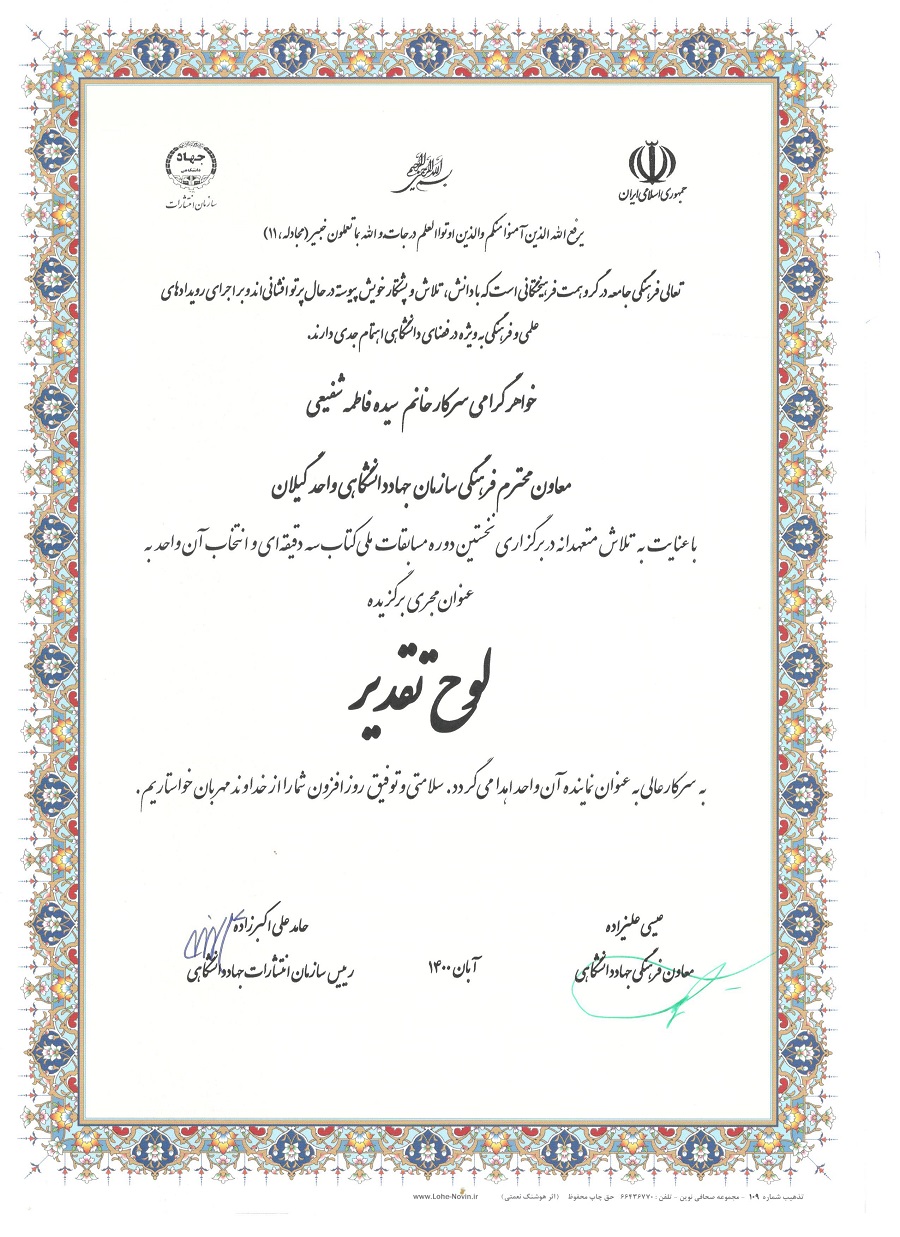 جمهوری اسلامی ایران
بسم الله الرحمن الرحیم
جهاد
دانشگاهی
سازمان انتشارات
یرفع الله الذین آمنوا منکم والذین اوتوا العلم درجات و الله بما تعلون خبیر (مجادله، ۱۱)
تعالی فرهنگی جامعه در گرو همت فرهیختگانی است که با دانش، تلاش و پشتکار خویش پیوسته در حال پرتو افشانی اند و بر اجرای رویدادهای
علمی و فرهنگی به ویژه در فضای دانشگاهی اهتمام جدی دارند.
خواهر گرامی سرکار خانم سیده فاطمه شفیعی
معاون محترم فرهنگی سازمان جهاد دانشگاهی واحد گیلان
با عنایت به تلاش متعهدانه در برگزاری نخستین دوره مسابقات ملی کتاب سه دقیقه ای و انتخاب آن واحد به
عنوان مجری برگزیده
لوح تقدیر
به سرکار عالی به عنوان نماینده آن واحد اهدا می گردد. سلامتی و توفیق روز افزون شما را از خداوند مهربان خواستاریم.
عیسی علیزاده
معاون فرهنگی جهاد دانشگاهی
آبان ۱۴۰۰
حامد علی اکبرزاده
رییس سازمان انتشارات جهاد دانشگاهی
تذهیب شماره ۱۰۹ - مجموعه صحافی نوین - تلفن : ۶۶۴۳۶۷۷۰ حق چاپ محفوظ (اثر هوشنگ نعمتی) www.Lohe-Novin.ir